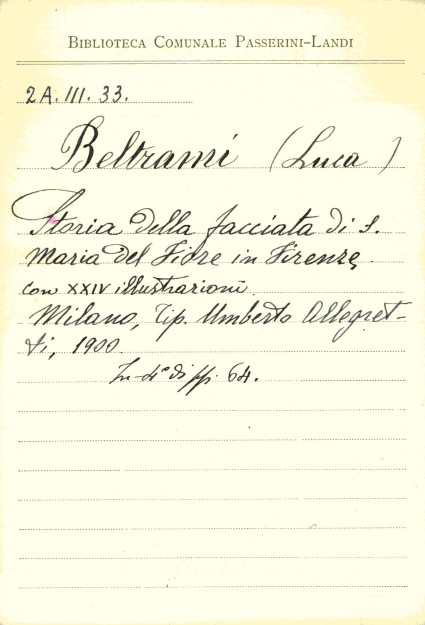 BIBLIOTECA COMUNALE PASSERINI-LANDI
2A. III. 33.
Beltrami (Luca)
Storia della facciata di S.
Maria del Fiore in Firenze,
con XXIV illustrazioni.
Milano, Tip. Umberto Allegret-
ti, 1900.
In-4° di pp. 64.